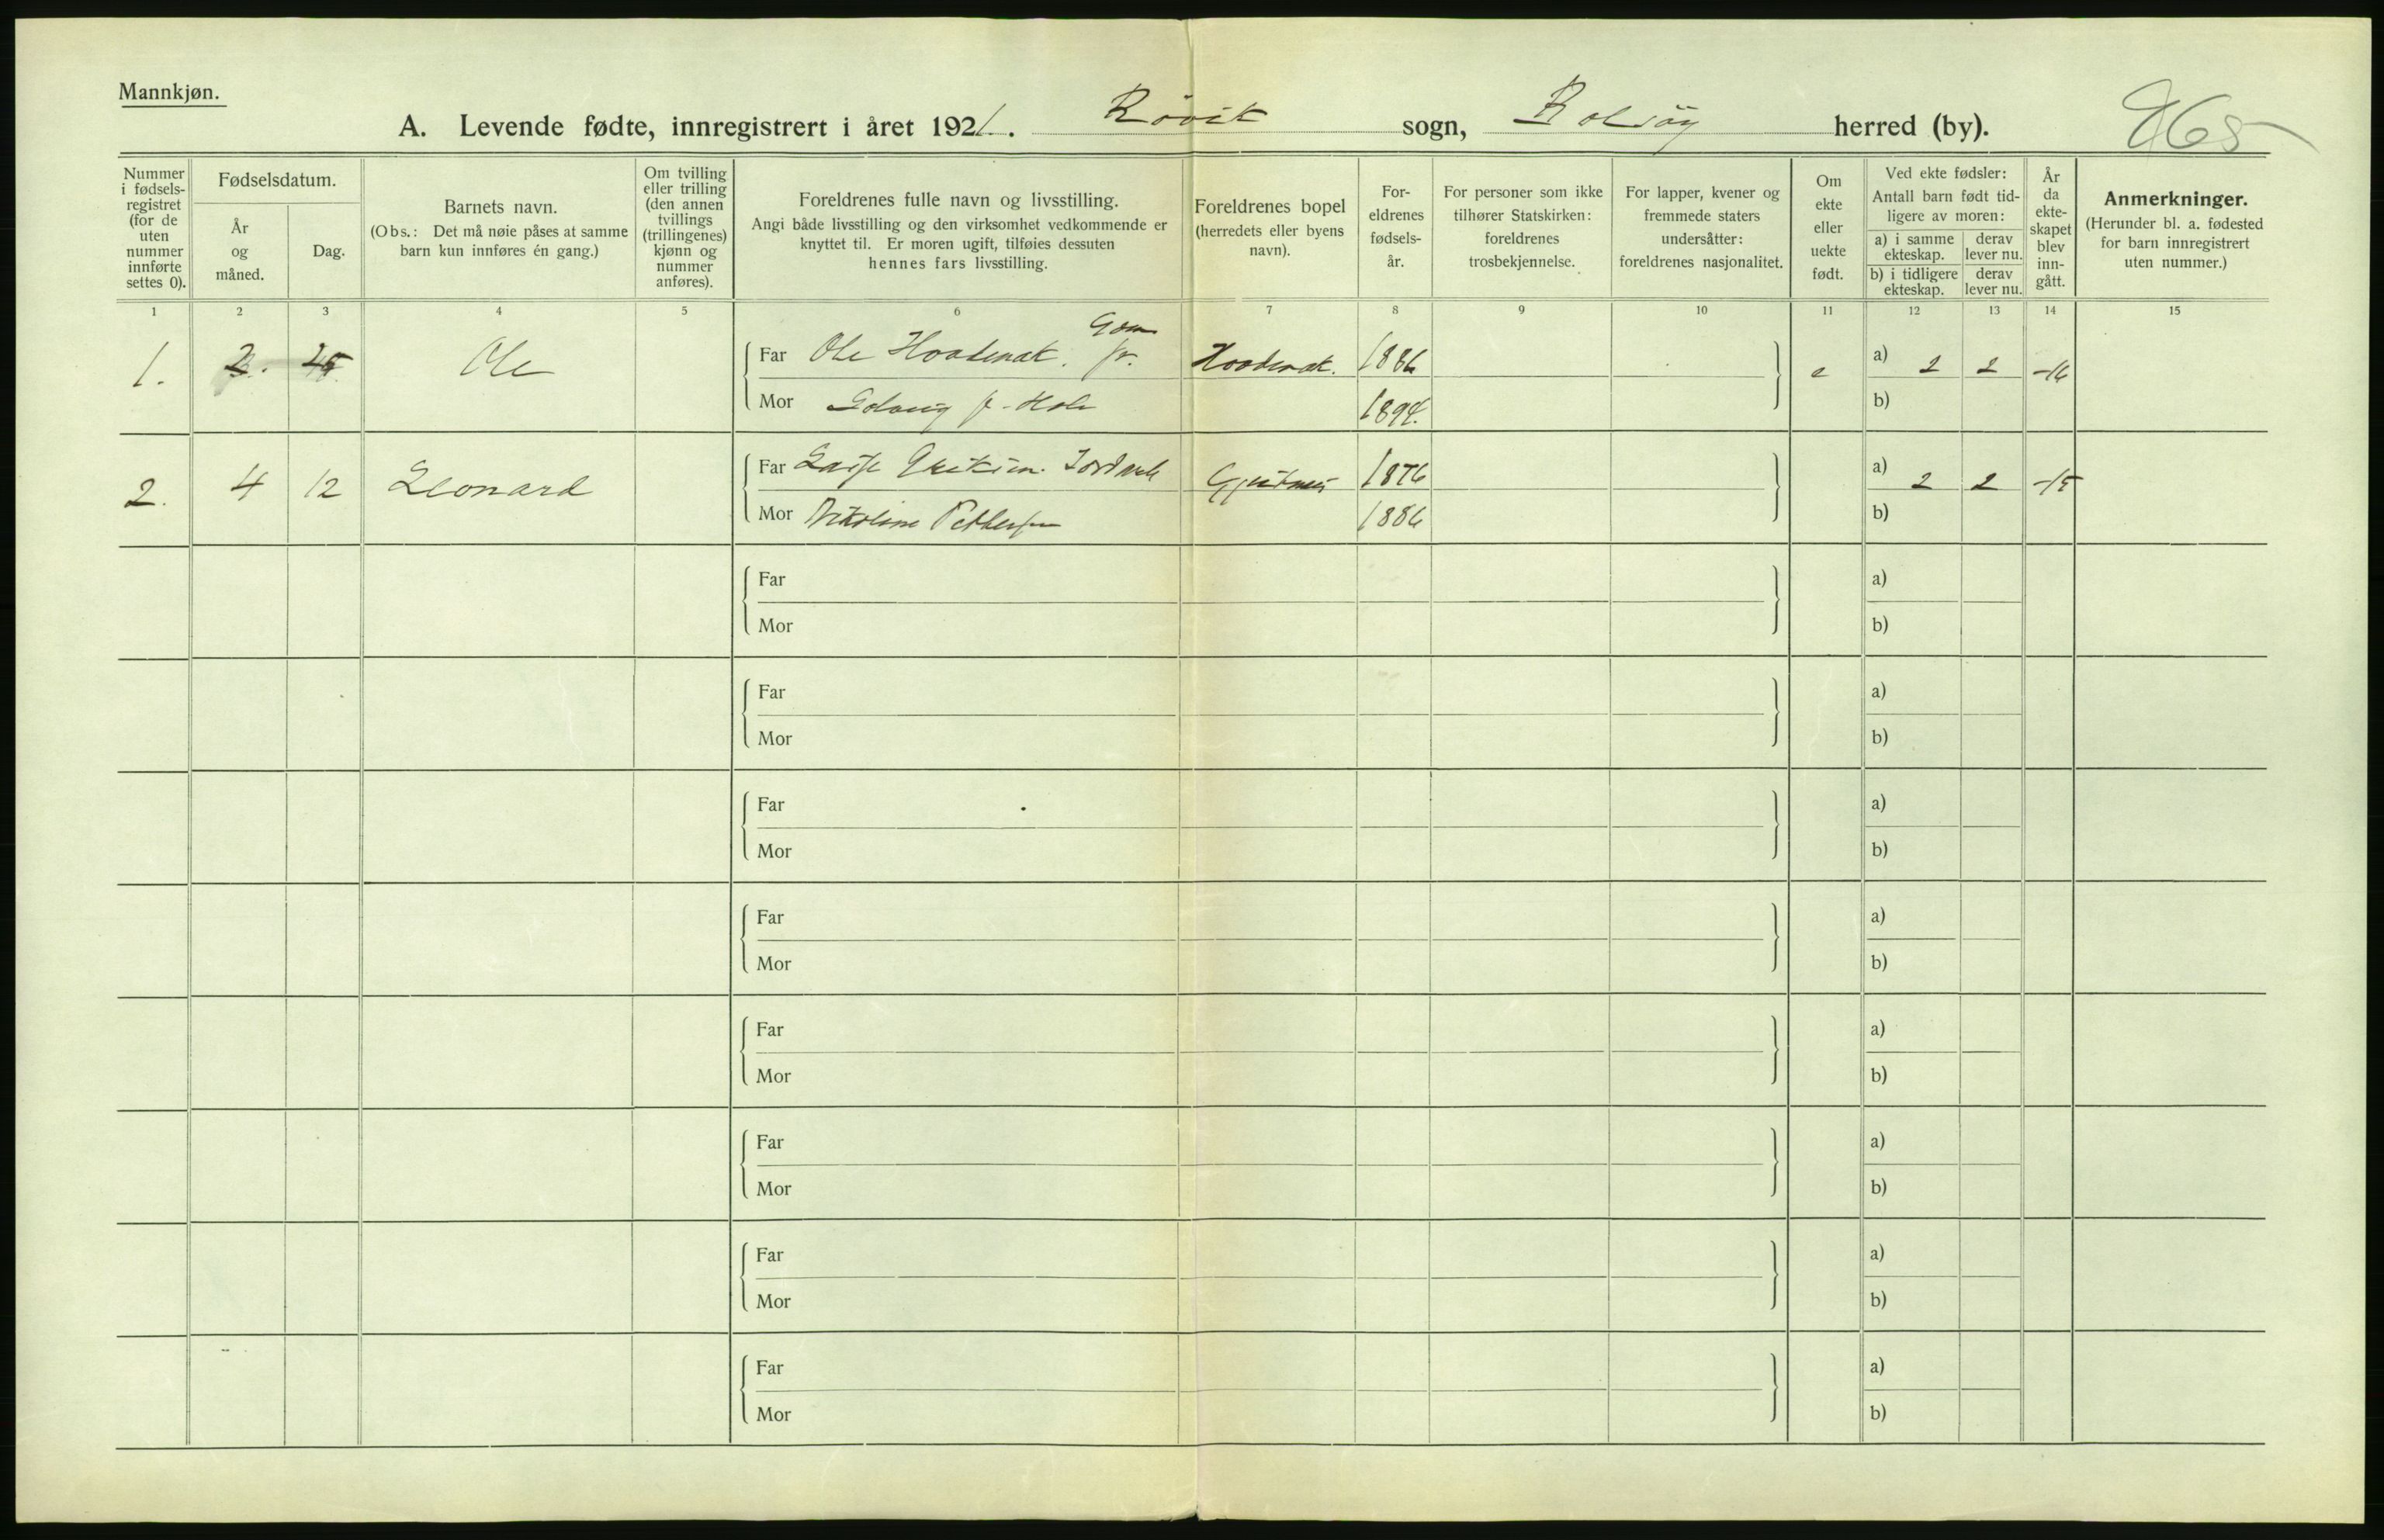 Mannkjøn.
A. Levende fødte, innregistrert i året 1921. Røvik sogn, Bolsøy herred (by).
Nummer i fødsels-registret (for de uten nummer innførte settes 0).
Fødselsdatum.
År og måned.
Dag.
Barnets navn.
(Obs.: Det må nøie påses at samme barn kun innføres én gang.)
Om tvilling eller trilling (den annen tvillings (trillingenes) kjønn og nummer anføres).
Foreldrenes fulle navn og livsstilling.
Angi både livsstilling og den virksomhet vedkommende er knyttet til. Er moren ugift, tilføies dessuten hennes fars livsstilling.
Foreldrenes bopel (herredets eller byens navn).
For-eldrenes fødsels-år.
For personer som ikke tilhører Statskirken: foreldrenes trosbekjennelse.
For lapper, kvener og fremmede staters undersåtter: foreldrenes nasjonalitet.
Om ekte eller uekte født.
Ved ekte fødsler:
Antall barn født tid-ligere av moren:
a) i samme ekteskap. derav lever nu.
b) i tidligere ekteskap. derav lever nu.
År da ekte-skapet blev inn-gått.
Anmerkninger.
(Herunder bl. a. fødested for barn innregistrert uten nummer.)
1 2 3 4 5 6 7 8 9 10 11 12 13 14 15
1. 2. Ole Far Ole 1886 e a) 2 2 -16
Mor 1894. b)
2. 4 12 Leonard Far 1876 a) 2 2 -15
Mor Nikoline 1886 b)
Far a)
Mor b)
Far a)
Mor b)
Far a)
Mor b)
Far a)
Mor b)
Far a)
Mor b)
Far a)
Mor b)
Far a)
Mor b)
Far a)
Mor b)